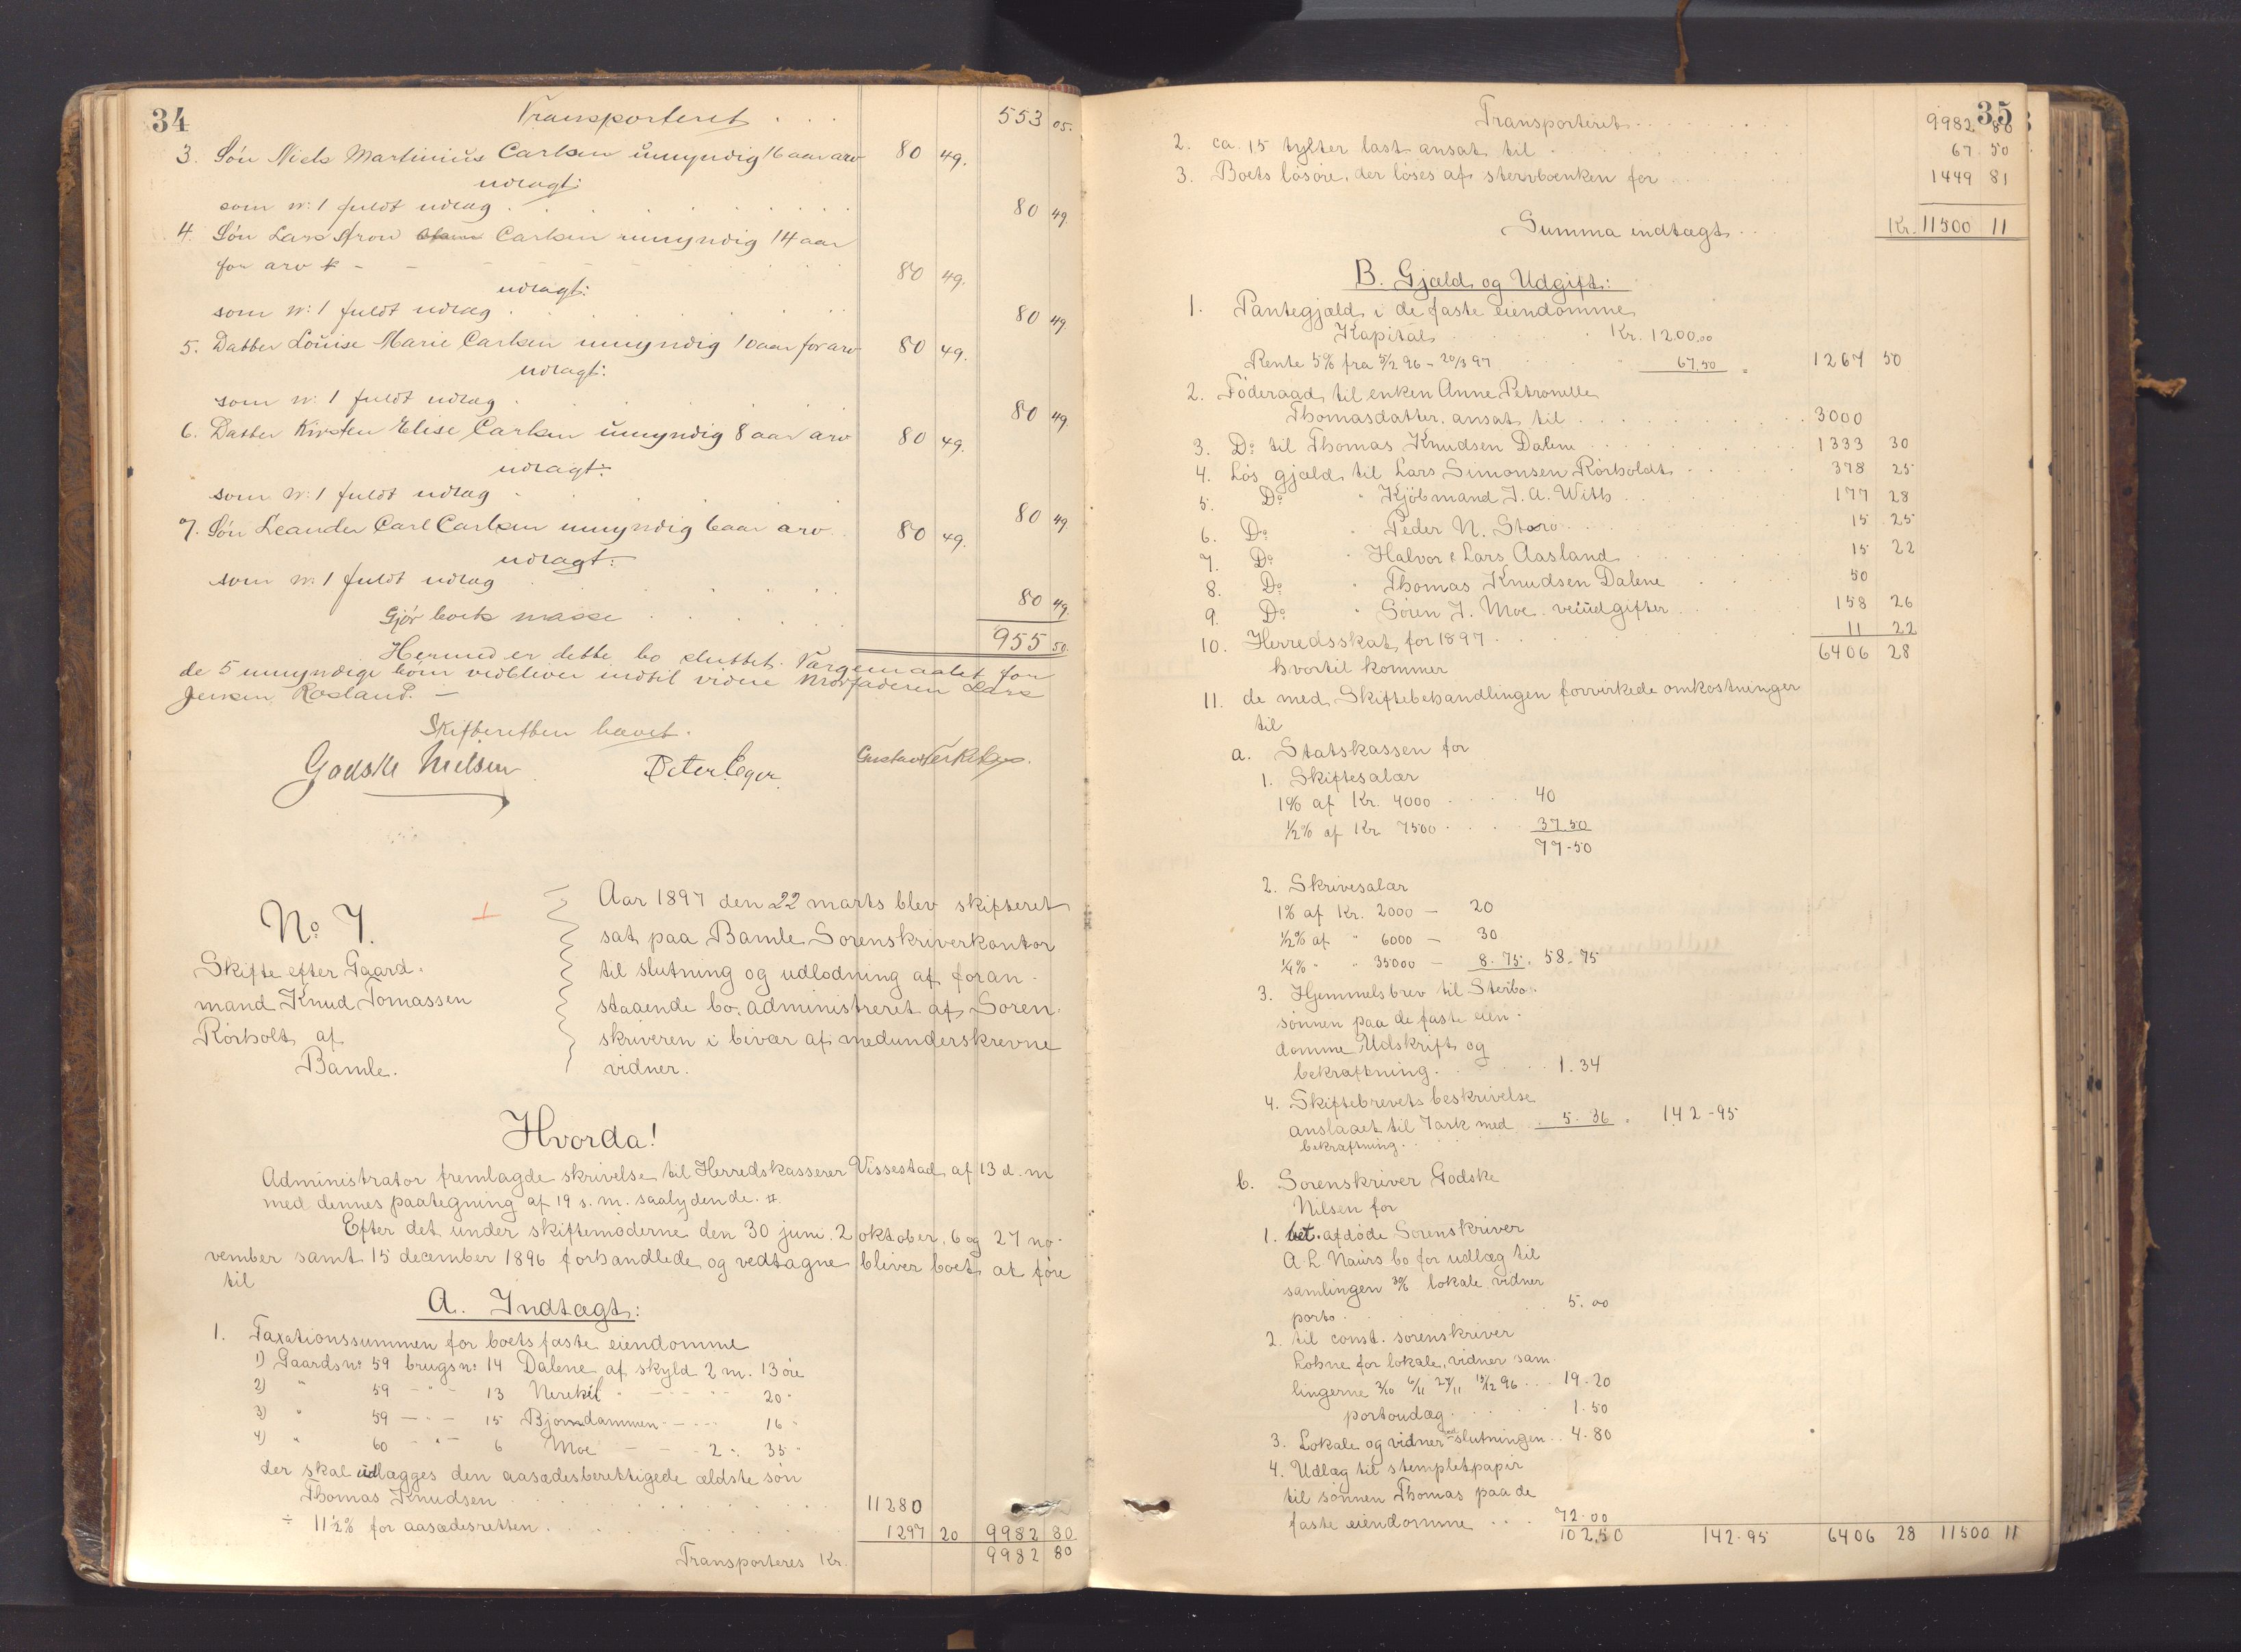 34
Transporteret . . . 553 05.
3. Søn Niels Martinius Carlsen umyndig 16 aar arv 80 49.
udlagt:
som no: 1 fuldt udlæg . . . 80 49.
4. Søn Lars Carlsen umyndig 14 aar
for arv - - 80 49.
udlagt:
som no: 1 fuldt udlæg . . . 80 49.
5. Datter Louise Marie Carlsen umyndig 10 aar for arv 80 49.
udlagt:
som no: 1 fuldt udlæg . . . 80 49.
6. Datter Kirsten Elise Carlsen umyndig 8 aar arv 80 49.
udlagt:
som no: 1 fuldt udlæg . . . 80 49
7. Søn Leander Carl Carlsen umyndig 6 aar arv 80 49.
udlagt:
som no: 1 fuldt udlæg . . . 80 49.
Gjør boets masse . . . 955 50.
Hermed er dette bo sluttet. Værgemaalet for
de 5 umyndige børn vedbliver indtil videre Morfaderen Lars
Jensen Rosland. —
Skifteretten hævet.
Godske Nielsen Peter Eger. Gustav
No 7.
Skifte efter Gaard-
mand Knud Tomassen
Rörholt af
Bamle.
Aar 1897 den 22 marts blev skifteret
sat paa Bamle Sorenskriverkontor
til slutning og udlodning af foran-
staaende bo. administreret af Soren-
skriveren i bivær af medunderskrevne
vidner.
Hvorda!
Administrator fremlagde skrivelse til Herredskasserer Vissestad af 13 d. m
med dennes paategning af 19 s. m. saalydende. #.
Efter det under skiftemøderne den 30 juni. 2 oktober, 6 og 27 no-
vember samt 15 december 1896 forhandlede og vedtagne bliver boet at føre
til
A. Indtægt:
1. Taxationssummen for boets faste eiendomme
1) Gaardsno 59 brugsno 14 Dalene af skyld 2 m. 13 øre
2) " 59 - " - 13 Nerekil " 20 "
3) " 59 - " - 15 Bjorndammen - 16 "
4) " 60 - " - 6 Moe - - 2 ". 35 "
der skal udlægges den aasædesberettigede ældste søn
Thomas Knudsen . . . 11280
÷ 11½% for aasædesretten . . . 1297 20 9982 80.
Transporteres Kr. 9982 80
35
Transporteret . . . 9982 80
2. ca. 15 tylter last ansat til . . . 67 50
3. Boets løsøre, der løses af stervboenken for . . . 1449 81
Summa indtægt . . Kr. 11500 11
B. Gjæld og Udgift:
1. Pantegjæld i de faste eiendomme
Kapital . . . Kr. 1200.00
Rente 5% fra 5/2 96 - 20/3 97 " 67.50 " 1267 50
2. Föderaad til enken Anne Petronelle
Thomasdatter. ansat til . . . 3000
3. Do til Thomas Knudsen Dalene . . . 1333 30
4. Løs gjæld til Lars Simonsen Rörholdt . . . 378 25
5. Do " Kjöbmand J. A. With . . . 177 28
6. Do " Peder N. Storo . . . 15 25
7. Do " Halvor & Lars Aasland . . . 15 22
8. Do " Thomas Knudsen Dalene . . . 50
9. Do " Sören J. Moe. veiudgifter . . . 158 26
10. Herredsskat for 1897 . . . 11 22
hvortil kommer 6406 28
11. de med Skiftebehandlingen forvirkede omkostninger
til
a. Statskassen for
1. Skiftesalær
1% af Kr. 4000 . . . . 40
½% af Kr 7500 . . . . 37.50
77-50
2. Skrivesalær
1% af Kr. 2000 — 20
½% af " 6000 — 30
¼% " " 35000 — 8.75. 58.75
3. Hjemmelsbrev til Sterbo-
sönnen paa de faste eien-
domme Udskrift og
bekræftning . . . 1.34
4. Skiftebrevets beskrivelse
anslaaet til 7 ark med . 5.36 . 142-95
bekræftning. .
b. Sorenskriver Godske
Nilsen for
1. bet. afdøde Sorenskriver
A. L. Nairs bo for udlæg til
samlingen 30/6 lokale vidner
porto . . . 5.00
2. til const. sorenskriver
Lohne for lokale, vidner sam-
lingerne 2/10 6/11 27/11 15/12 96 . . . 19.20
portoudlæg . . . 1.50
3. Lokale og vidner ved slutningen . . 4.80
4. Udlæg til stempletpapir
til sönnen Thomas paa de
faste eiendomme . . . 72.00
102.50 142.95 6406 28 11500 11